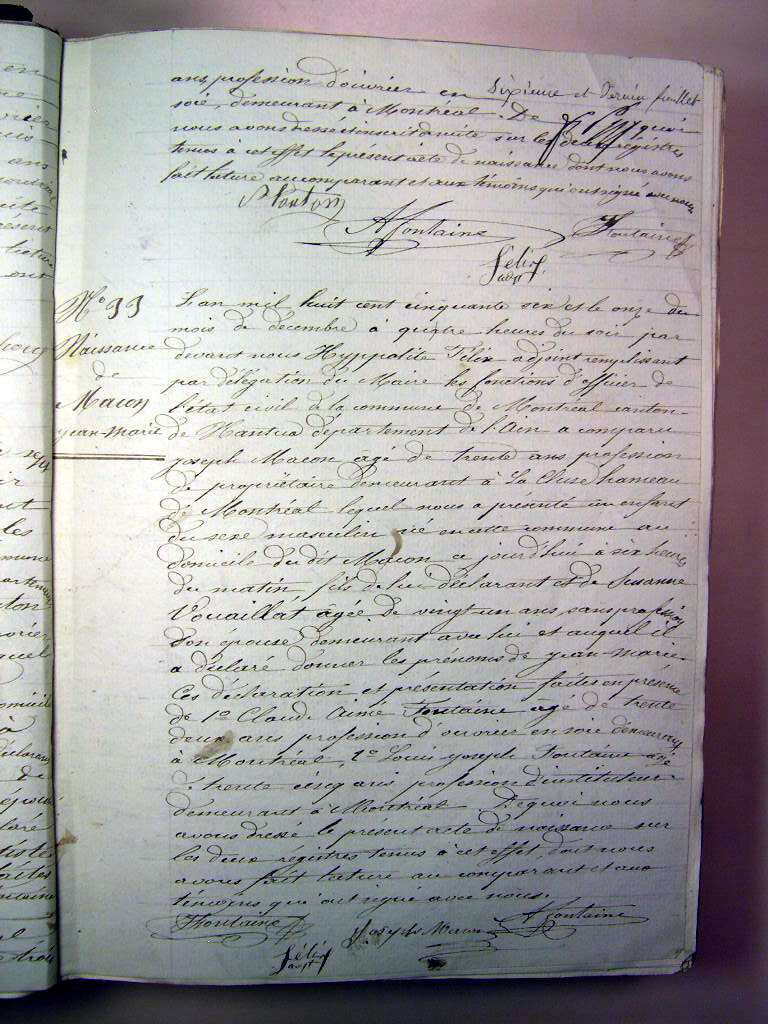 ans, profession d'ouvrier en
Sixième et Dernier feuillet
soie, demeurant à Montréal. De quoi
nous avons dressé et inscrit de suite sur les deux régistres
tenus à cet effet le présent acte de naissance dont nous avons
fait lecture au comparant et aux témoins qui ont signé avec nous
Afontaine
Fontaine
félix
adjt
N° 33
Naissance
de
Macon
jean-Marie
L'an mil huit cent cinquante six et le onze du
mois de décembre à quatre heures du soir par
devant nous Hyppolite Félix adjoint remplissant
par délégation du Maire les fonctions d'officier de
l'état civil de la commune de Montréal canton
de Nantua département de l'Ain a comparu
joseph Macon agé de trente ans profession
de propriétaire demeurant à La Cluse hameau
de Montréal lequel nous a présenté un enfant
du sexe masculin né en cette commune au
domicile du dit Macon ce jourd'hui à six heures
du matin, fils de lui déclarant et de Susanne
Vouaillat agée de vingt-un ans, sans profession
son épouse, demeurant avec lui et auquel il
a déclaré donner les prénoms de jean-Marie.
Ces déclaration et présentation faites en présence
de 1° Claude Aimé Fontaine agé de trente
deux ans profession d'ouvrier en soie demeurant
à Montréal, 2° Louis joseph Fontaine agé
de trente cinq ans profession d'instituteur
demeurant à Montréal. De quoi nous
avons dressé le présent acte de naissance sur
les deux régistres tenus à cet effet, dont nous
avons fait lecture au comparant et aux
témoins qui ont signé avec nous.
Fontaine
Joseph Macon
Afontaine
félix
adjt